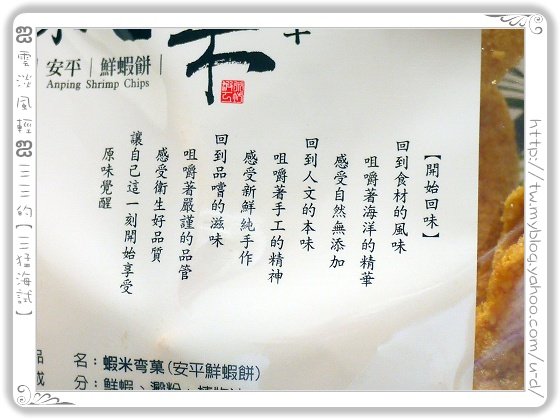 安平｜鮮蝦餅｜
Anping Shrimp Chips
【開始回味】
回到食材的風味
咀嚼著海洋的精華
感受自然無添加
回到人文的本味
咀嚼著手工的精神
感受新鮮純手作
回到品嚐的滋味
咀嚼著嚴謹的品管
感受衛生好品質
讓自己這一刻開始享受
原味覺醒
品 名：蝦米弯菓(安平鮮蝦餅)
成 分：鮮蝦、澱粉、
雲淡風輕 三三的【三猛海試】
http://tw.myblog.yahoo.com/u-d/